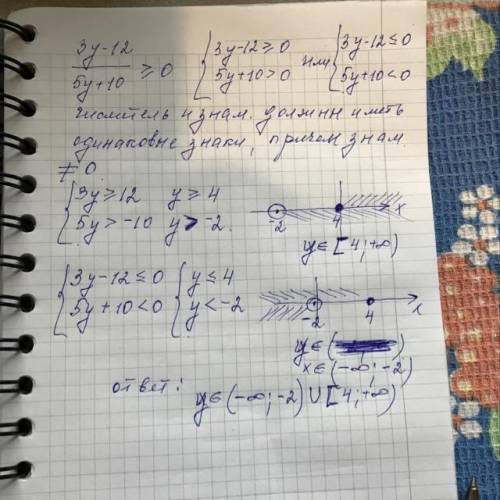 (3y-12)/(5y+10) ≥ 0 { 3y-12 ≥ 0 ; 5y+10 > 0 или { 3y-12 ≤ 0 ; 5y+10 < 0
числитель и знам. должны иметь
одинаковые знаки, причем знам.
≠ 0
{ 3y ≥ 12 y ≥ 4
5y > -10 y > -2. -2 4 x
y∈[4;+∞)
{ 3y-12 ≤ 0 { y ≤ 4
5y+10 < 0 y < -2 -2 4 x
y∈( )
x∈(-∞;-2)
ответ: y∈(-∞;-2)∪[4;+∞)